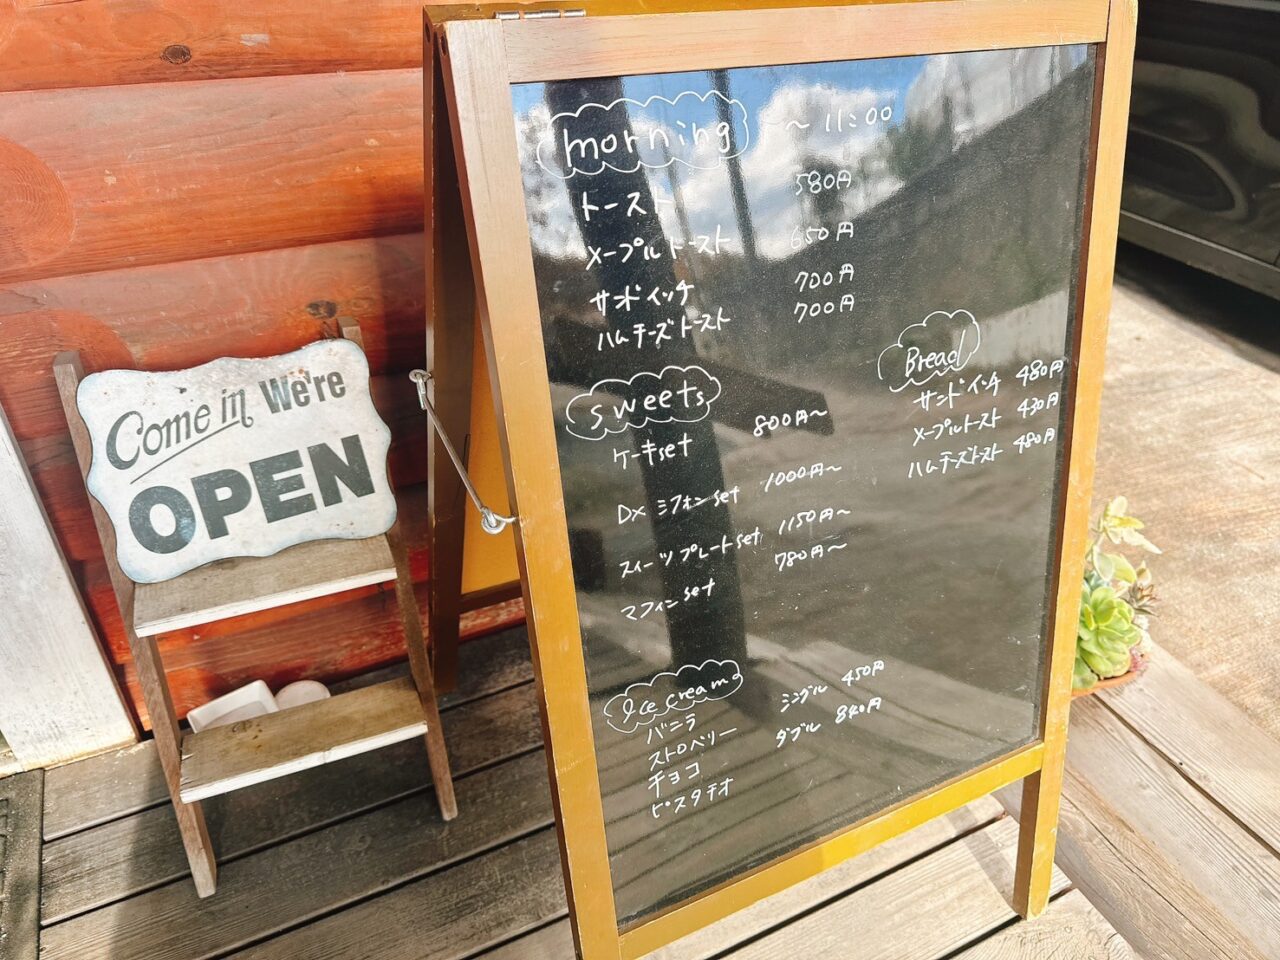 Come in We're
OPEN
morning ～11:00
トースト 580円
メープルトースト 650円
サンドイッチ 700円
ハムチーズトースト 700円
Bread
サンドイッチ 480円
メープルトースト 430円
ハムチーズトースト 480円
sweets
ケーキset 800円～
DX シフォンset 1000円～
スイーツプレートset 1150円～
マフィンset 780円～
Ice cream
バニラ シングル 450円
ストロベリー ダブル 840円
チョコ
ピスタチオ